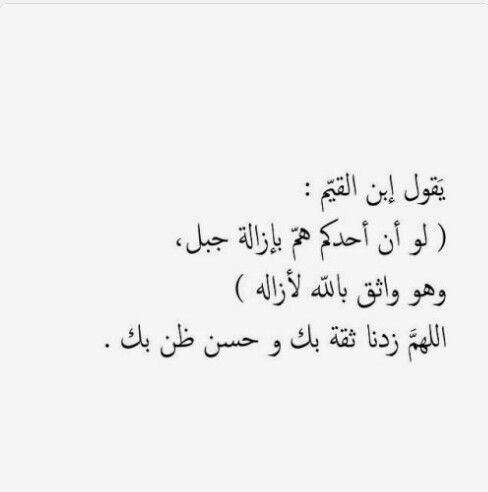 يَقول إبن القيّم :
( لو أن أحدكم همّ بإزالة جبل،
وهو واثق بالله لأزاله )
اللهمَّ زدنا ثقة بك و حسن ظن بك .